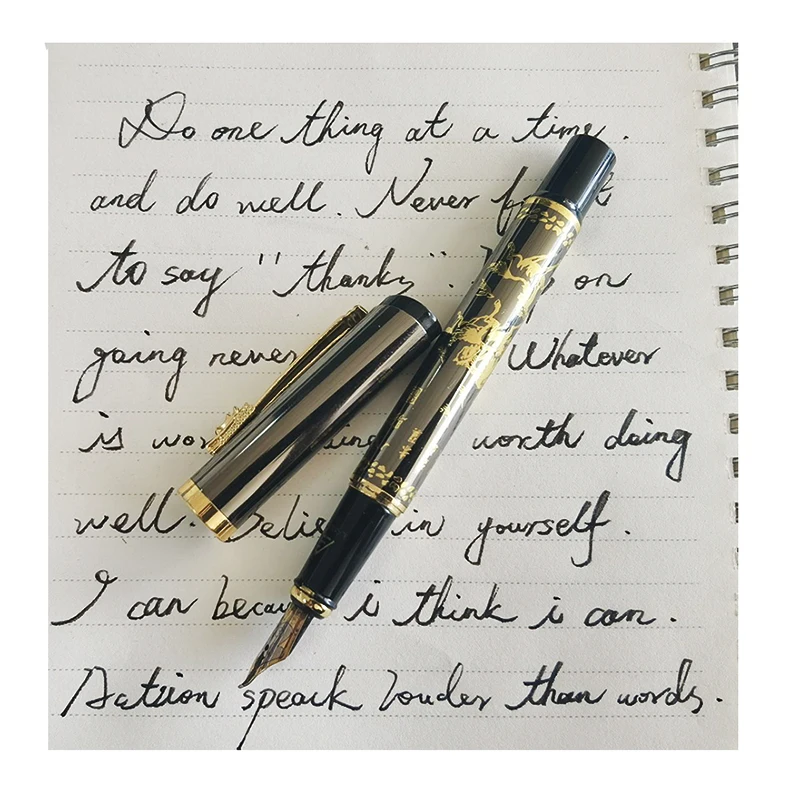 Do one thing at a time.
and do well. Never
to say "thanks". on
going never Whatever
is worth doing
well. Believe in yourself.
I can because i think i can.
Aatiion speack louder than words.